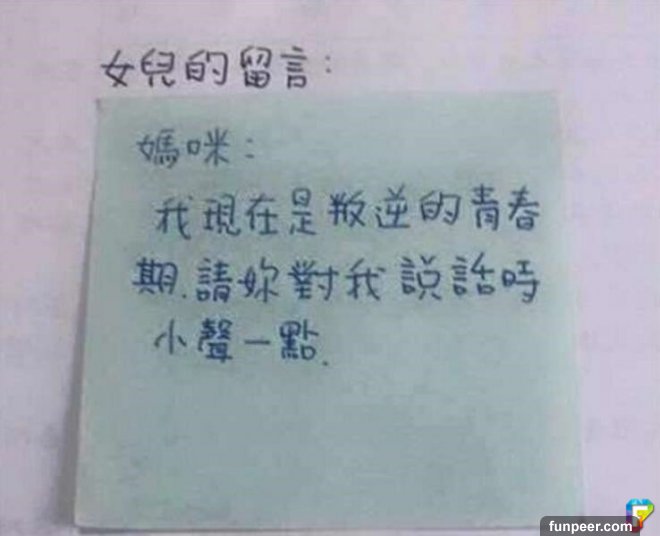 女兒的留言:
媽咪:
我現在是叛逆的青春
期.請妳對我說話時
小聲一點.
funpeer.com